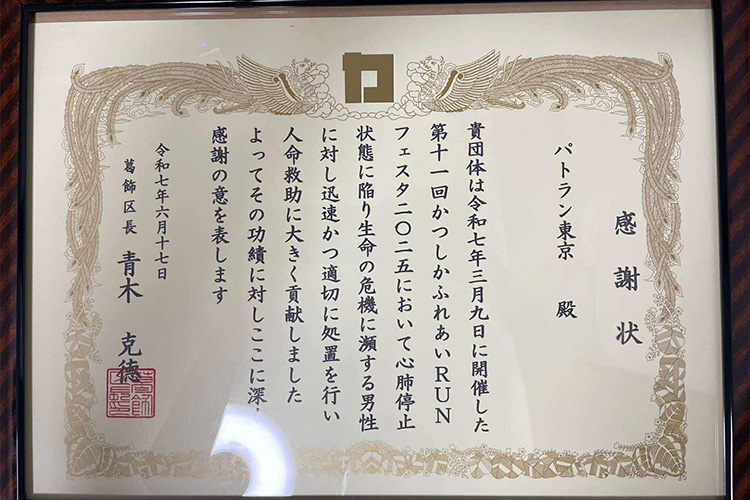 感謝状
パトラン東京 殿
貴団体は令和七年三月九日に開催した
第十一回かつしかふれあいRUN
フェスタ二〇二五において心肺停止
状態に陥り生命の危機に瀕する男性
に対し迅速かつ適切に処置を行い
人命救助に大きく貢献しました
よってその功績に対しここに深
感謝の意を表します
令和七年六月十七日
葛飾区長 青木 克德